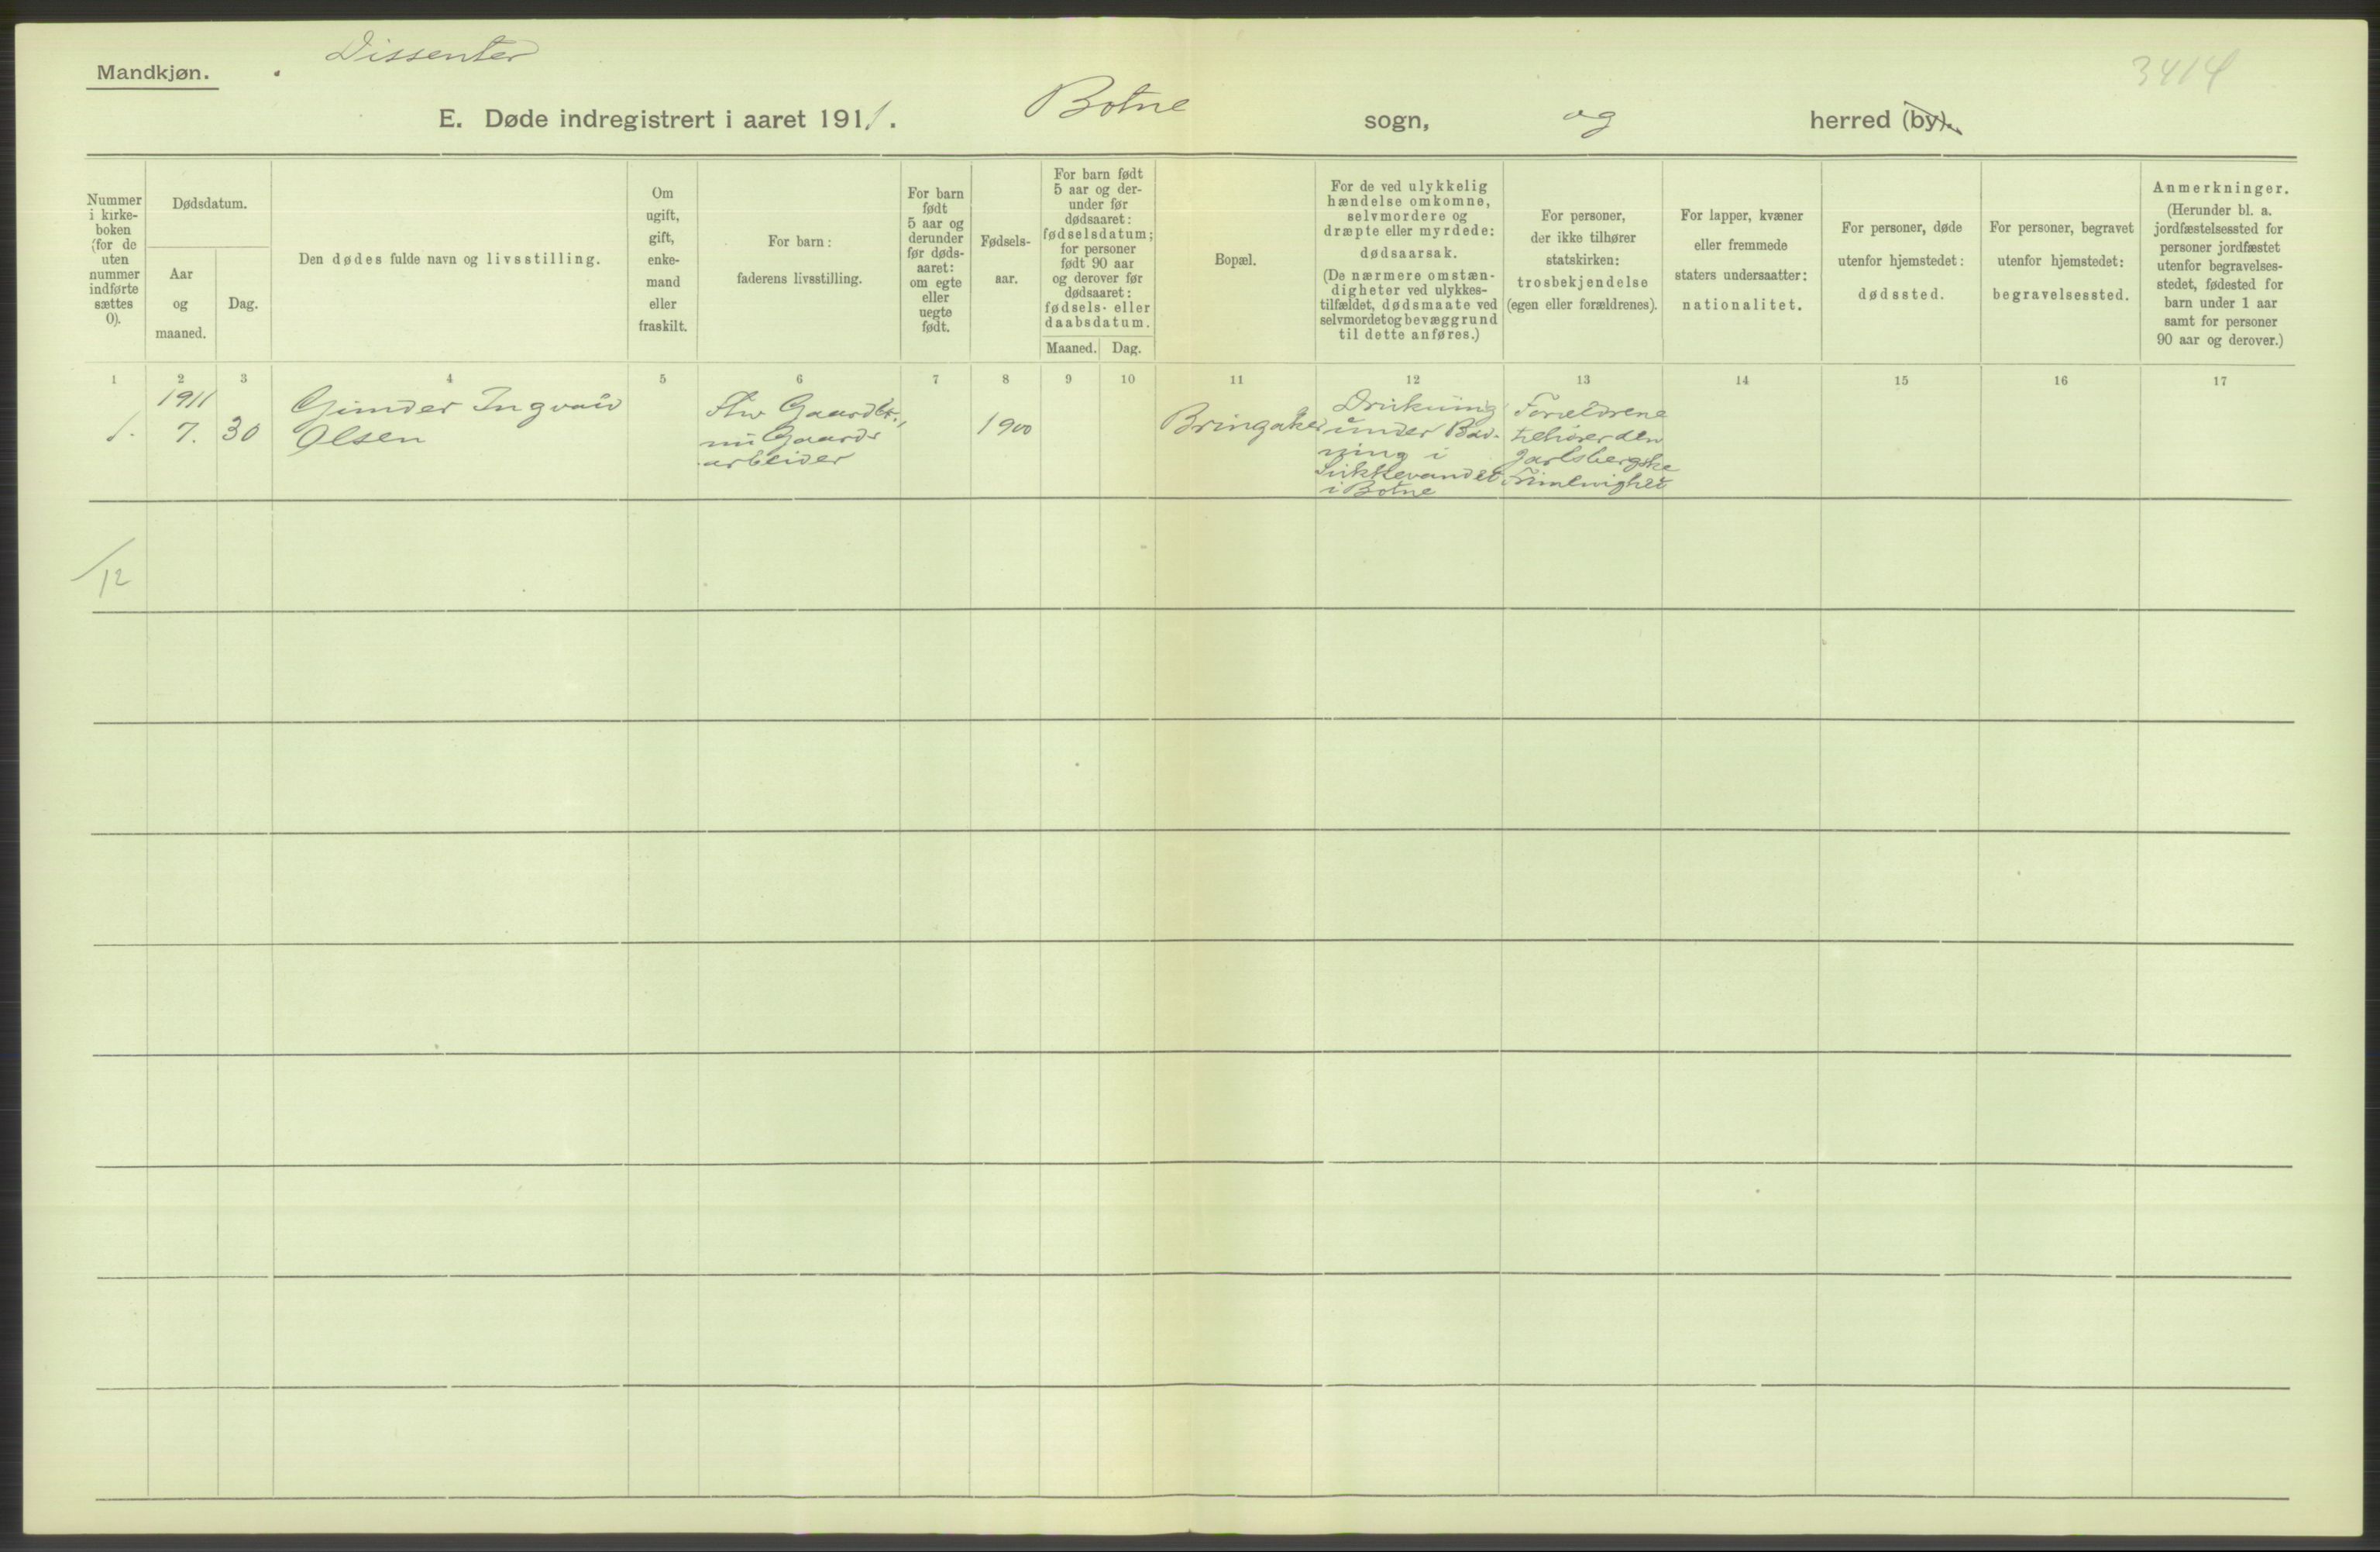 Mandkjøn.
Dissenter
3414
E. Døde indregistrert i aaret 1911.
Botne
sogn,
og
herred (by).
Nummer
i kirke-
boken
(for de
uten
nummer
indførte
sættes
0).
Dødsdatum.
Aar
og
maaned.
Dag.
Den dødes fulde navn og livsstilling.
Om
ugift,
gift,
enke-
mand
eller
fraskilt.
For barn:
faderens livsstilling.
For barn
født
5 aar og
derunder
før døds-
aaret:
om egte
eller
uegte
født.
Fødsels-
aar.
For barn født
5 aar og der-
under før
dødsaaret:
fødselsdatum;
for personer
født 90 aar
og derover før
dødsaaret:
fødsels- eller
daabsdatum.
Maaned.
Dag.
Bopæl.
For de ved ulykkelig
hændelse omkomne,
selvmordere og
dræpte eller myrdede:
dødsaarsak.
(De nærmere omstæn-
digheter ved ulykkes-
tilfældet, dødsmaate ved
selvmordet og bevæggrund
til dette anføres.)
For personer,
der ikke tilhører
statskirken:
trosbekjendelse
(egen eller forældrenes).
For lapper, kvæner
eller fremmede
staters undersaatter:
nationalitet.
For personer, døde
utenfor hjemstedet:
dødssted.
For personer, begravet
utenfor hjemstedet:
begravelsessted.
Anmerkninger.
(Herunder bl. a.
jordfæstelsessted for
personer jordfæstet
utenfor begravelses-
stedet, fødested for
barn under 1 aar
samt for personer
90 aar og derover.)
1 2 3 4 5 6 7 8 9 10 11 12 13 14 15 16 17
1.
1911
7.
30
Ingvald
Olsen
Gaardbr.,
nu Gaards
arbeider
1900
Bringaker
Drukning
under Bad-
ning i
i Botne
Forældrene
tilhører den
Jarlsbergske
Frimenighet
/12